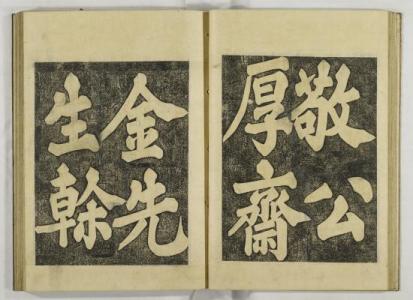 敬公
厚齋
金先
生榦